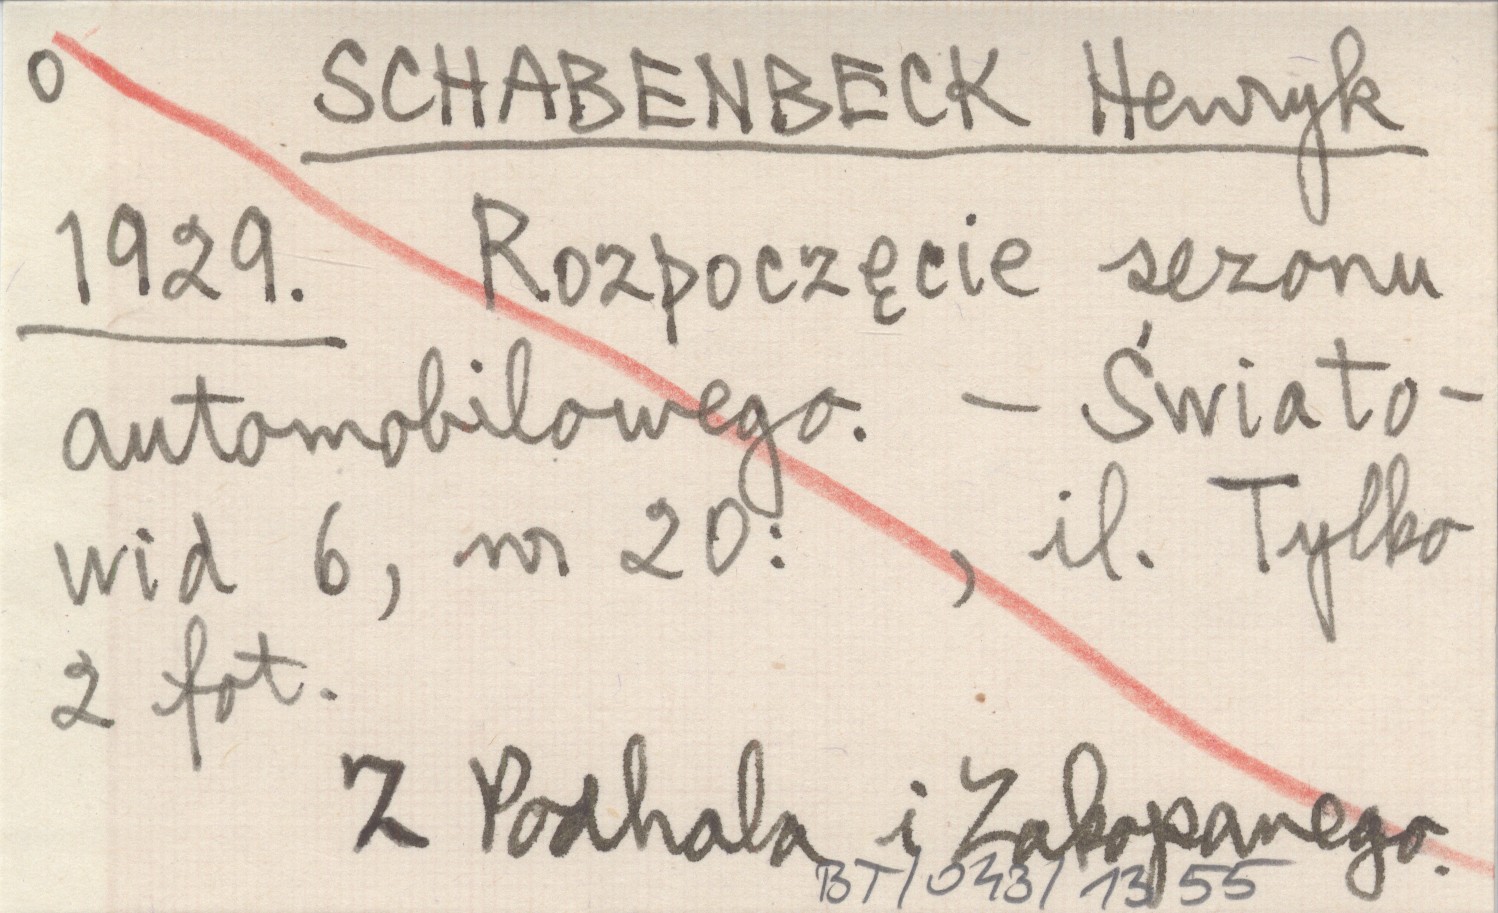 o SCHABENBECK Henryk
1929. Rozpoczęcie sezonu
automobilowego. — Świato-
wid 6, nr 20: , il. Tylko
2 fot.
Z Podhala i Zakopanego.
BT/043/1355